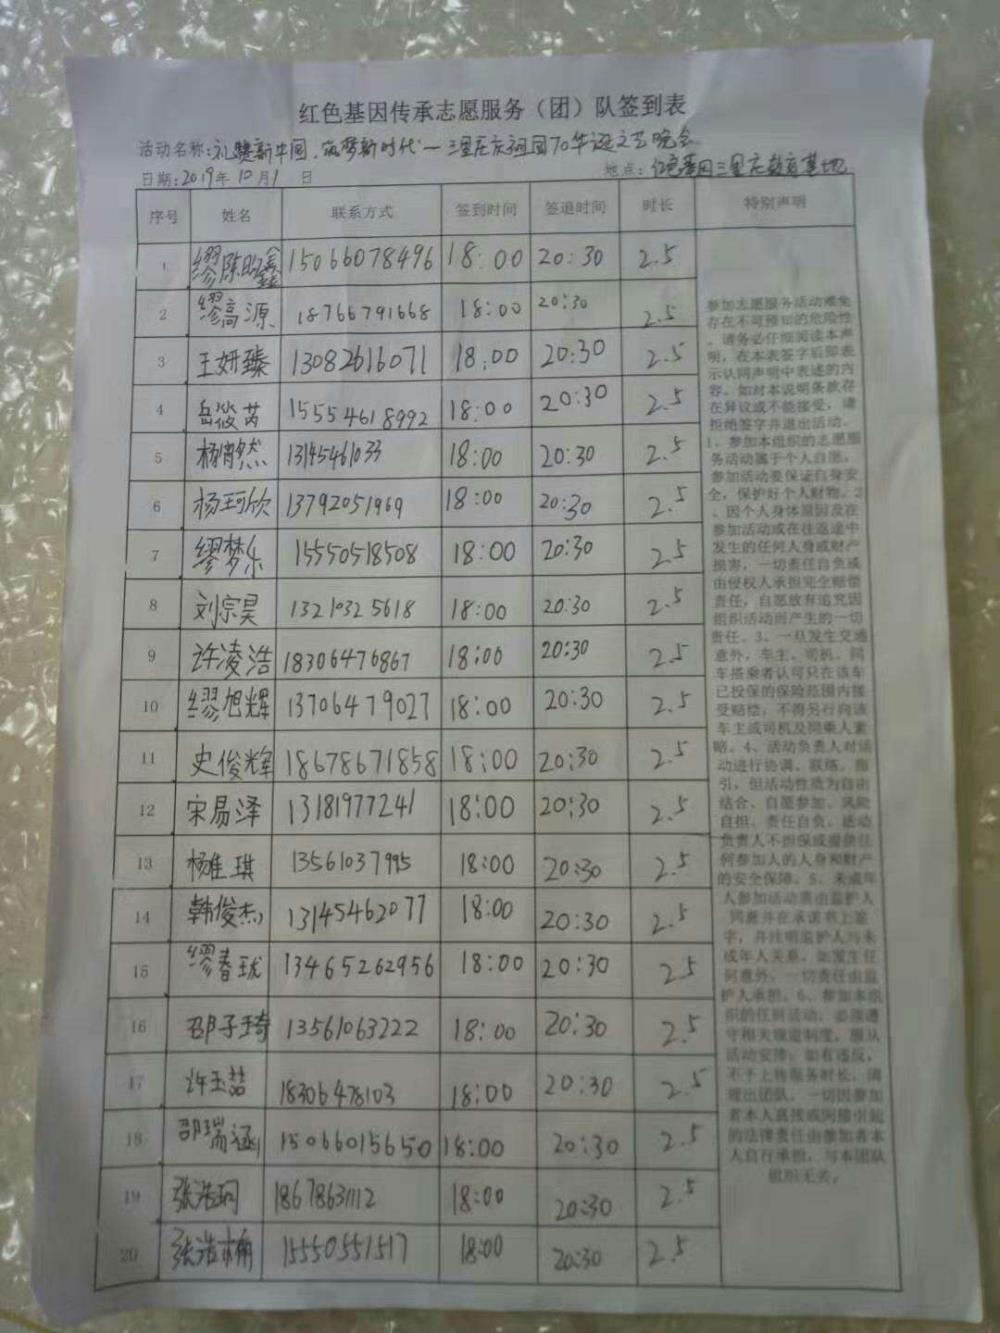 红色基因传承志愿服务（团）队签到表
活动名称：礼赞新中国，筑梦新时代一三里庄庆祖国70华诞文艺晚会
日期：2019年10月1日 地点：红色基因三里庄教育基地
序号 姓名 联系方式 签到时间 签退时间 时长 特别声明
1 缪陈 15066078496 18:00 20:30 2.5
2 缪高源 18766791668 18:00 20:30 2.5
3 王妍臻 13082616071 18:00 20:30 2.5
4 岳筱芮 15554618992 18:00 20:30 2.5
5 杨然 13145461033 18:00 20:30 2.5
6 杨珂欣 13792051969 18:00 20:30 2.5
7 缪梦乐 15550518508 18:00 20:30 2.5
8 刘宗昊 13210325618 18:00 20:30 2.5
9 许凌浩 18306476867 18:00 20:30 2.5
10 缪旭辉 13706479027 18:00 20:30 2.5
11 史俊辉 18678671858 18:00 20:30 2.5
12 宋易泽 13181977241 18:00 20:30 2.5
13 杨佳琪 13561037995 18:00 20:30 2.5
14 韩俊杰 13145462077 18:00 20:30 2.5
15 缪春珑 13465262956 18:00 20:30 2.5
16 邵子琦 13561063222 18:00 20:30 2.5
17 许玉喆 18306478103 18:00 20:30 2.5
18 邵瑞涵 15066015650 18:00 20:30 2.5
19 张浩珂 18678631112 18:00 20:30 2.5
20 张浩楠 15550551517 18:00 20:30 2.5
参加志愿服务活动难免
存在不可预知的危险性
，请务必仔细阅读本声
明，在本表签字后即表
示认同声明中表述的内
容。如对本说明条款存
在异议或不能接受，请
拒绝签字并退出活动。
1、参加本组织的志愿服
务活动属于个人自愿，
参加活动要保证自身安
全，保护好个人财物。2
、因个人身体原因及在
参加活动或在往返途中
发生的任何人身或财产
损害，一切责任自负或
由侵权人承担完全赔偿
责任，自愿放弃追究因
组织活动而产生的一切
责任。3、一旦发生交通
意外，车主、司机、同
车搭乘者认可只在该车
已投保的保险范围内接
受赔偿，不得另行向该
车主或司机及同乘人索
赔。4、活动负责人对活
动进行协调、联络、指
引，但活动性质为自由
结合、自愿参加、风险
自担、责任自负，活动
负责人不担保或提供任
何参加人的人身和财产
的安全保障。5、未成年
人参加活动需由监护人
同意并在承诺书上签
字，并注明监护人与未
成年人关系，如发生任
何意外，一切责任由监
护人承担。6、参加本组
织的任何活动，必须遵
守相关规定制度，服从
活动安排；如有违反，
不予上传服务时长，清
理出团队。一切因参加
者本人直接或间接引起
的法律责任由参加者本
人自行承担，与本团队
组织无关。